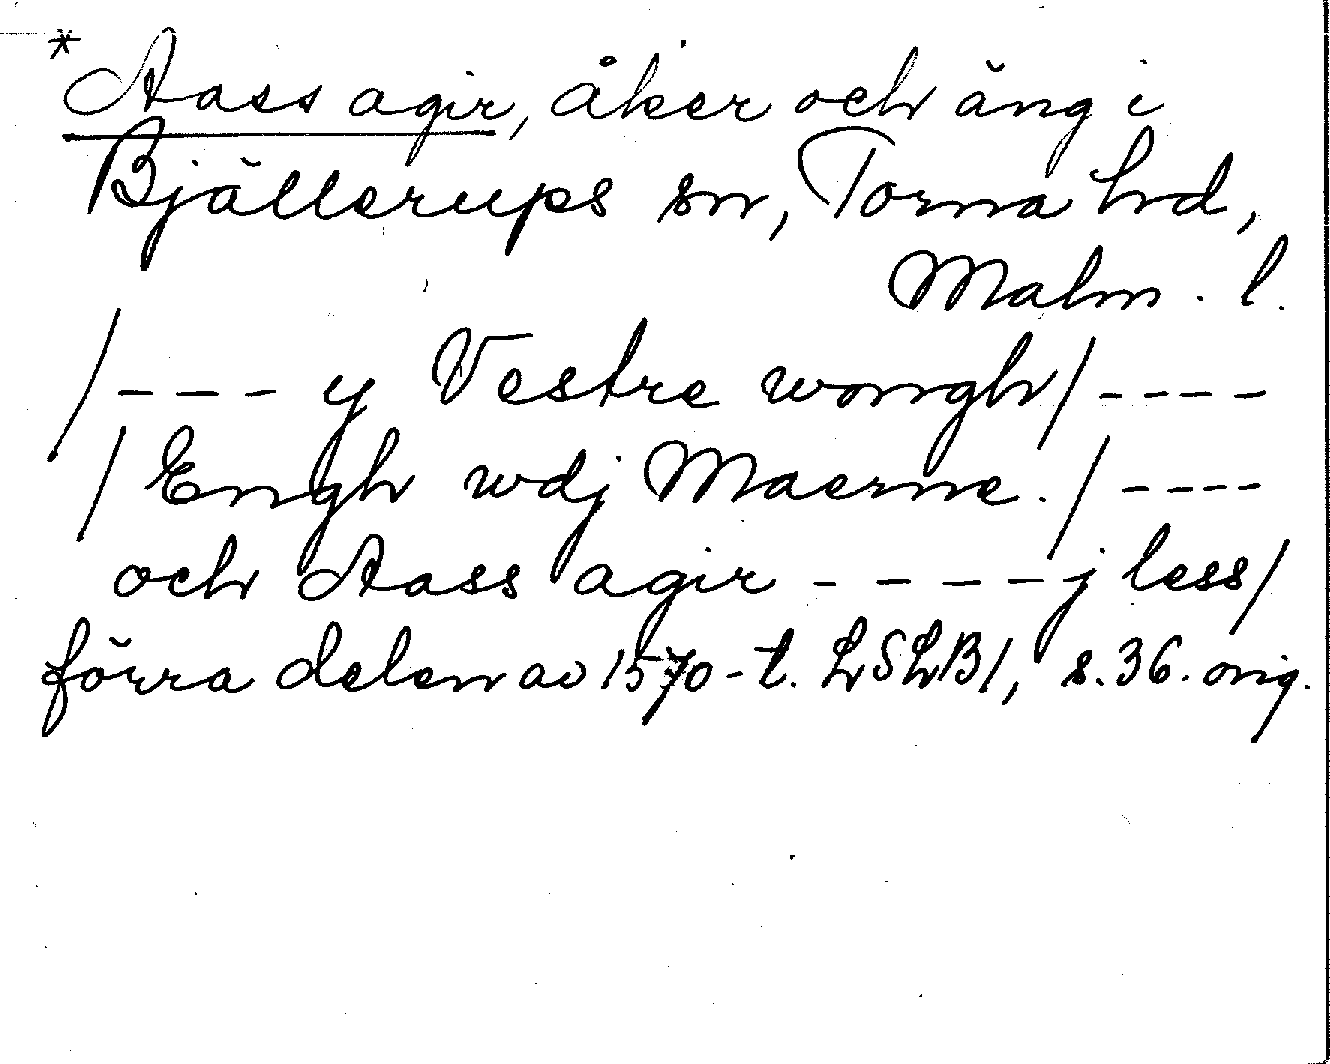 *Aass agir, åker och äng i
Bjällerups sn, Torna hrd,
Malm. l.
/--- y Vestre wongh/----
/Engh wdj Maerne./----
och Aass agir ----j less/
förra delen av 1570-t. LSLB1, s.36. orig.